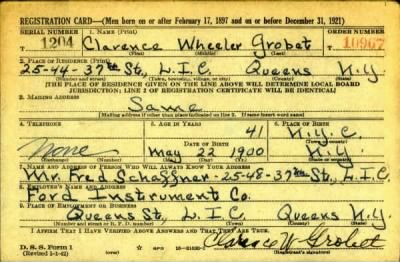 REGISTRATION CARD—(Men born on or after February 17, 1897 and on or before December 31, 1921)
SERIAL NUMBER 1. NAME (Print) ORDER NUMBER
T 1204 Clarence Wheeler Grobet T 10967
(First) (Middle) (Last)
2. PLACE OF RESIDENCE (Print)
25-44-37th St, L.I.C. Queens N.Y.
(Number and street) (Town, township, village, or city) (County) (State)
[THE PLACE OF RESIDENCE GIVEN ON THE LINE ABOVE WILL DETERMINE LOCAL BOARD
JURISDICTION; LINE 2 OF REGISTRATION CERTIFICATE WILL BE IDENTICAL]
3. MAILING ADDRESS
Same
[Mailing address if other than place indicated on line 2. If same insert word same]
4. TELEPHONE 5. AGE IN YEARS 6. PLACE OF BIRTH
41 N.Y.C.
None DATE OF BIRTH (Town or county)
May 22 1900 N.Y.
(Exchange) (Number) (Mo.) (Day) (Yr.) (State or country)
7. NAME AND ADDRESS OF PERSON WHO WILL ALWAYS KNOW YOUR ADDRESS
Mr. Fred Schaffner-25-48-37th St, L.I.C.
8. EMPLOYER'S NAME AND ADDRESS
Ford Instrument Co.
9. PLACE OF EMPLOYMENT OR BUSINESS
Queens St, L.I.C. Queens N.Y.
(Number and street or R. F. D. number) (Town) (County) (State)
I AFFIRM THAT I HAVE VERIFIED ABOVE ANSWERS AND THAT THEY ARE TRUE.
D. S. S. Form 1 GPO Clarence W Grobet
(Revised 1-1-42) (Registrant's signature)